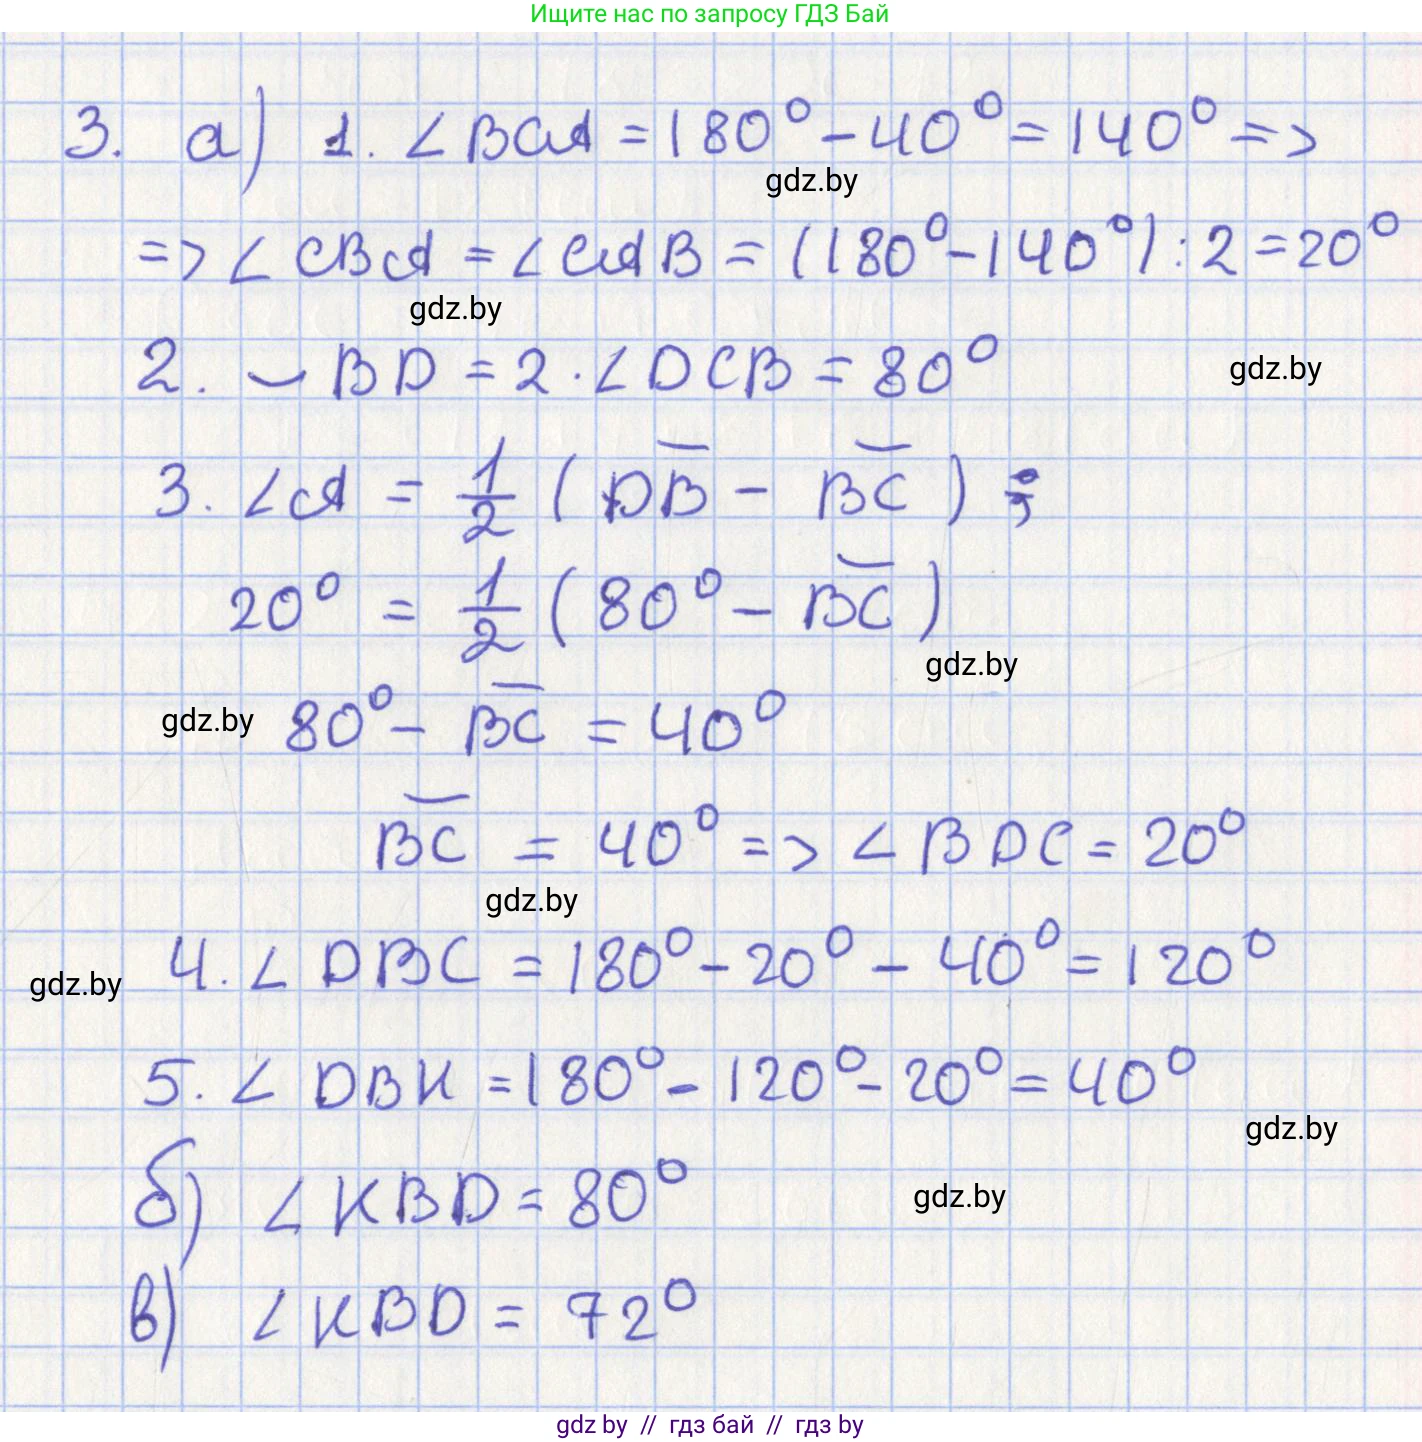 Ищите нас по запросу ГДЗ Бай
3. а) 1. ∠BCA = 180° - 40° = 140° =>
gdz.by
=> ∠CBA = ∠CAB = (180° - 140°) : 2 = 20°
gdz.by
2. ◡ BD = 2 · ∠DCB = 80°
gdz.by
3. ∠A = 1/2 (D͝B - B͝C) ;
20° = 1/2 (80° - B͝C)
gdz.by
gdz.by
80° - B͝C = 40°
B͝C = 40° => ∠BDC = 20°
gdz.by
4. ∠DBC = 180° - 20° - 40° = 120°
gdz.by
5. ∠DBK = 180° - 120° - 20° = 40°
gdz.by
б) ∠KBD = 80°
gdz.by
в) ∠KBD = 72°
gdz.by // гдз бай // гдз by